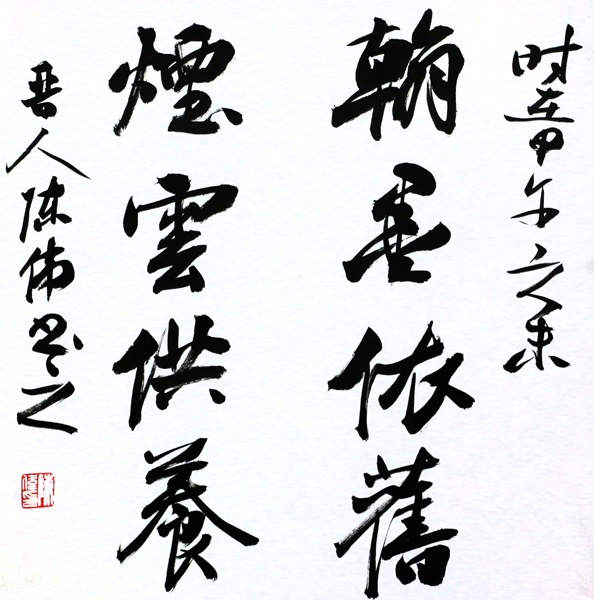 时在甲午之末
翰墨依舊
煙雲供養
晋人陈伟书之